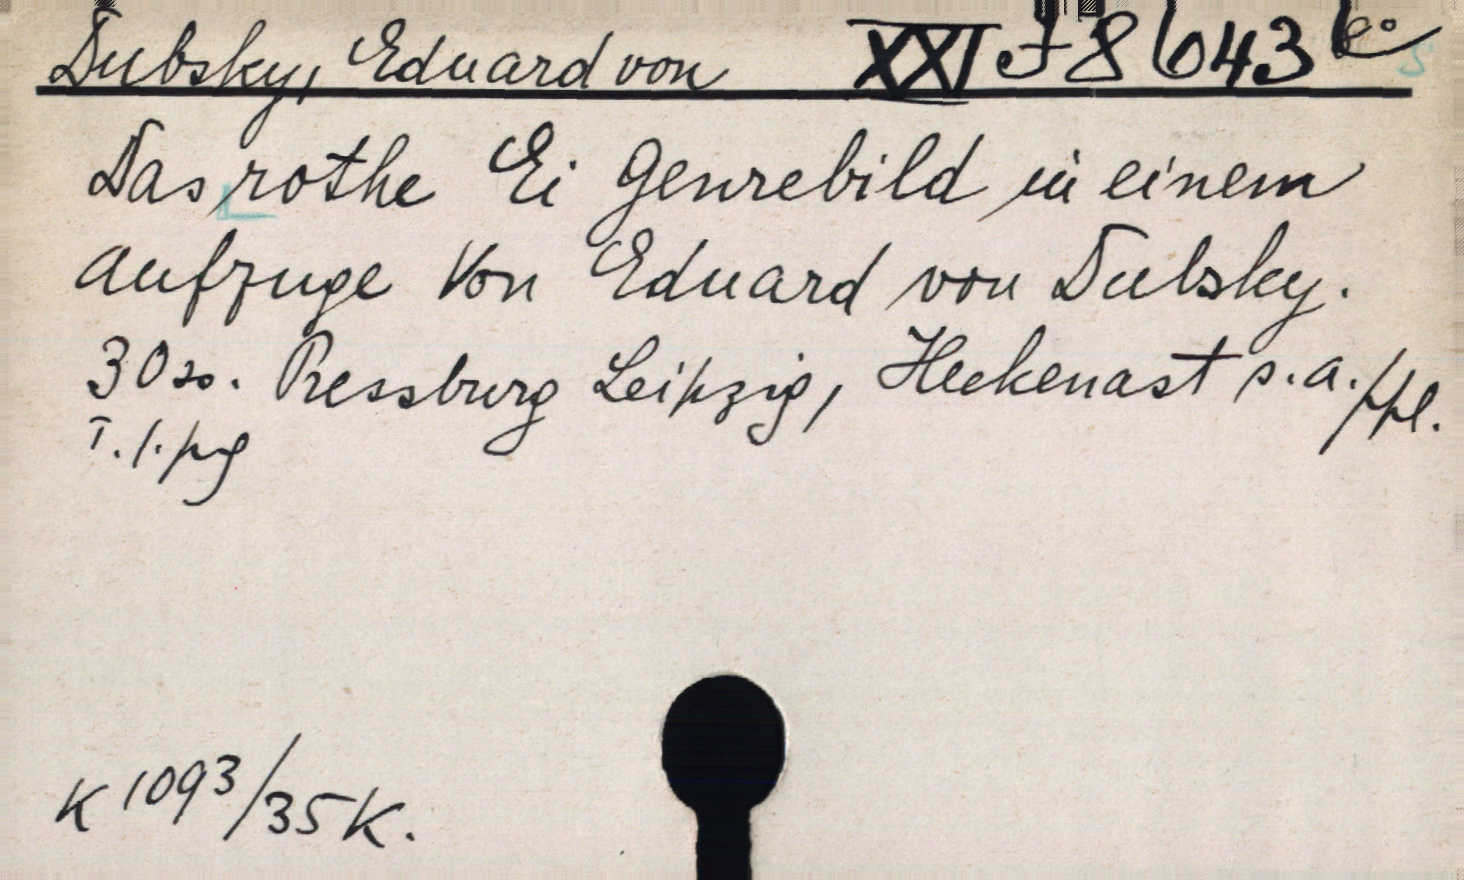 Dubsky, Eduard von XXI J 8643
Das rothe Ei Genrebild in einem
Aufzuge Von Eduard von Dubsky.
30 s. Pressburg Leipzig, Heckenast s.a. /ppl.
K 1093/35 K.